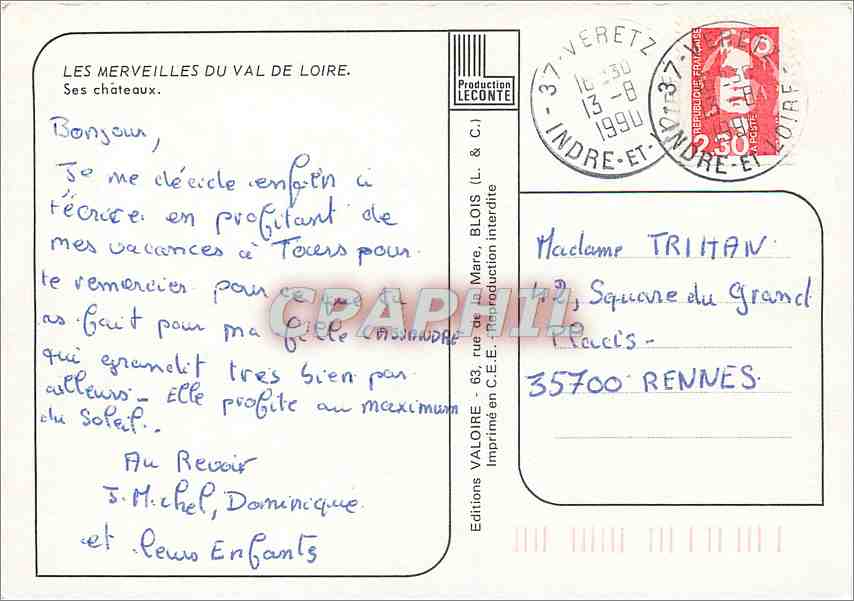 LES MERVEILLES DU VAL DE LOIRE.
Ses châteaux.
Production
LECONTE
Bonjour,
Je me décide enfin à
t'écrire en profitant de
mes vacances à Tours pour
te remercier pour ce que tu
as fait pour ma fille CASSANDRE
qui grandit très bien par
ailleurs - Elle profite au maximum
du Soleil..
Au Revoir
J. Michel, Dominique
et leurs Enfants
Editions VALOIRE - 63, rue de la Mare, BLOIS (L. & C.)
Imprimé en C.E.E. - Reproduction interdite
37 - VERETZ
13 - 8
1990
INDRE-ET-LOIRE
37 - VERETZ
INDRE-ET-LOIRE
REPUBLIQUE FRANÇAISE
LA POSTE
2,30
Madame TRIHAN
42, Square du Grand
Placis -
35700 RENNES.
CPAPHIL